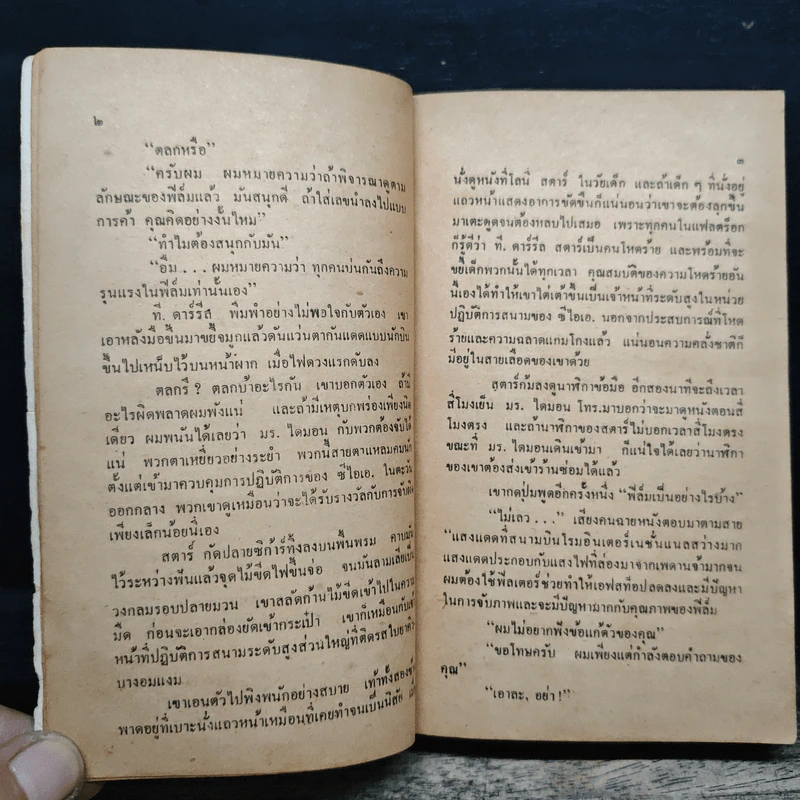 ๒
“ตลกหรือ”
“ครับผม ผมหมายความว่าถ้าพิจารณาดูตาม
ลักษณะของฟีล์มแล้ว มันสนุกดี ถ้าใส่เลขนำลงไปแบบ
การค้า คุณคิดอย่างงั้นไหม”
“ทำไมต้องสนุกกับมัน”
“อึ้ม . . . ผมหมายความว่า ทุกคนบ่นกันถึงความ
รุนแรงในฟีล์มเท่านั้นเอง”
ที. ดาร์รีส พึมพำอย่างไม่พอใจกับตัวเอง เขา
เอาหลังมือขึ้นมาขยี้จมูกแล้วดันแว่นตากันแดดแบบนักบิน
ขึ้นไปเหน็บไว้บนหน้าผาก เมื่อไฟดวงแรกดับลง
ตลกรึ ? ตลกบ้าอะไรกัน เขาบอกตัวเอง ถ้ามี
อะไรผิดพลาดผมพังแน่ และถ้ามีเหตุบกพร่องเพียงนิด
เดียว ผมพนันได้เลยว่า มร. ไดมอน กับพวกต้องจับได้
แน่ พวกตาเหยี่ยวอย่างระยำ พวกนี้สายตาแหลมคมนัก
ตั้งแต่เข้ามาควบคุมการปฏิบัติการของ ซีไอเอ. ในตะวัน
ออกกลาง พวกเขาดูเหมือนว่าจะได้รับรางวัลกับการจับผิด
เพียงเล็กน้อยนี่เอง
สตาร์ กัดปลายซิก้าร์ทิ้งลงบนพื้นพรม คาบมัน
ไว้ระหว่างฟันแล้วจุดไม้ขีดไฟขึ้นจ่อ จนมันลามเลียเป็น
วงกลมรอบปลายมวน เขาสลัดก้านไม้ขีดเข้าไปในความ
มืด ก่อนจะเอากล่องยัดเข้ากระเป๋า เขาก็เหมือนกับเจ้า
หน้าที่ปฏิบัติการสนามระดับสูงส่วนใหญ่ที่ติดรสใบยาคิว
บางอมแงม
เขาเอนตัวไปพิงพนักอย่างสบาย เท้าทั้งสองข้าง
พาดอยู่ที่เบาะนั่งแถวหน้าเหมือนที่เคยทำจนเป็นนิสัย
๓
นั่งดูหนังที่โลนี่ สตาร์ ในวัยเด็ก และถ้าเด็ก ๆ ที่นั่งอยู่
แถวหน้าแสดงอาการขัดขืนก็แน่นอนว่าเขาจะต้องลุกขึ้น
มาเตะดูดจนต้องหลบไปเสมอ เพราะทุกคนในแฟลตร็อก
ก็รู้ดีว่า ที. ดาร์รีส สตาร์เป็นคนโหดร้าย และพร้อมที่จะ
ขยี้เด็กพวกนั้นได้ทุกเวลา คุณสมบัติของความโหดร้ายอัน
นี้เองได้ทำให้เขาไต่เต้าขึ้นเป็นเจ้าหน้าที่ระดับสูงในหน่วย
ปฏิบัติการสนามของ ซีไอเอ. นอกจากประสบการณ์ที่โหด
ร้ายและความฉลาดแกมโกงแล้ว แน่นอนความคลั่งชาติก็
มีอยู่ในสายเลือดของเขาด้วย
สตาร์ก้มลงดูนาฬิกาข้อมือ อีกสองนาทีจะถึงเวลา
สี่โมงเย็น มร. ไดมอน โทร.มาบอกว่าจะมาดูหนังตอนสี่
โมงตรง และถ้านาฬิกาของสตาร์ไม่บอกเวลาสี่โมงตรง
ขณะที่ มร. ไดมอนเดินเข้ามา ก็แน่ใจได้เลยว่านาฬิกา
ของเขาต้องส่งเข้าร้านซ่อมได้แล้ว
เขากดปุ่มพูดอีกครั้งหนึ่ง “ฟีล์มเป็นอย่างไรบ้าง”
“ไม่เลว . . .” เสียงคนฉายหนังตอบมาตามสาย
“แสงแดดที่สนามบินโรมอินเตอร์เนชั่นแนลสว่างมาก
แสงแดดประกอบกับแสงไฟที่ส่องมาจากเพดานจ้ามากจน
ผมต้องใช้ฟิลเตอร์ช่วยทำให้เอฟสท็อปลดลงและมีปัญหา
ในการจับภาพและจะมีปัญหามากกับคุณภาพของฟีล์ม
“ผมไม่อยากฟังข้อแก้ตัวของคุณ”
“ขอโทษครับ ผมเพียงแต่กำลังตอบคำถามของ
คุณ”
“เอาละ, อย่า !”